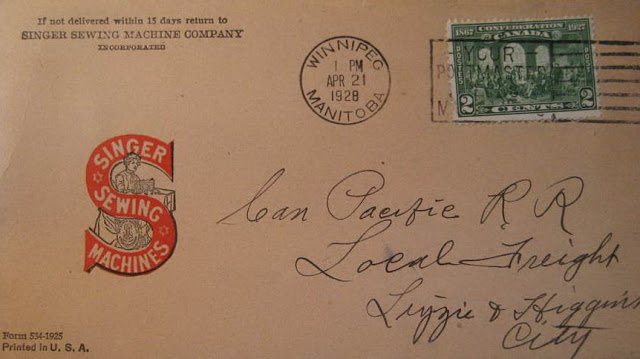 If not delivered within 15 days return to
SINGER SEWING MACHINE COMPANY
INCORPORATED
WINNIPEG
1 PM
APR 21
1928
MANITOBA
YOUR
1867 CONFEDERATION 1927
CANADA
2 CENTS 2
SINGER
SEWING
MACHINES
Can Pacific R R
Local Freight
& Higgins
City
Form 534-1925
Printed in U. S. A.